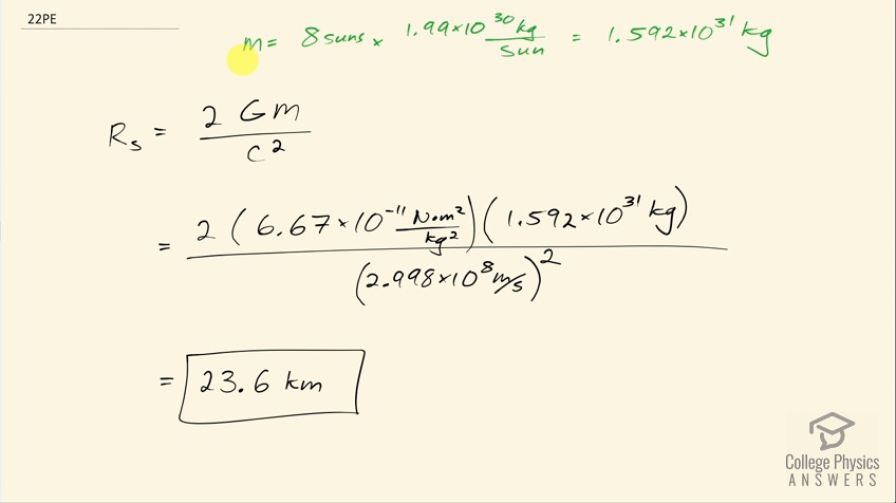 22PE
m = 8 suns × 1.99×10³⁰ kg/sun = 1.592×10³¹ kg
Rₛ = 2 G m / c²
= 2 (6.67×10⁻¹¹ N•m²/kg²)(1.592×10³¹ kg) / (2.998×10⁸ m/s)²
= 23.6 km
College Physics
ANSWERS